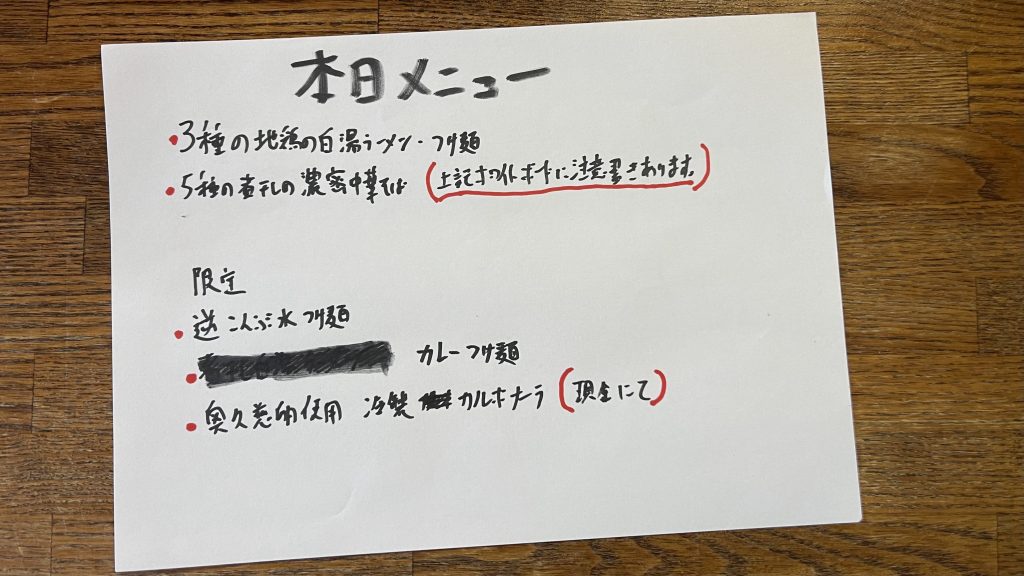 本日メニュー
・3種の地鶏の白湯ラーメン・つけ麺
・5種の煮干しの濃密中華そば (上記ホワイトボードに注意書きあります。)
限定
・逆こんぶ水つけ麺
・カレーつけ麺
・奥久慈卵使用 冷製 カルボナーラ (現金にて)